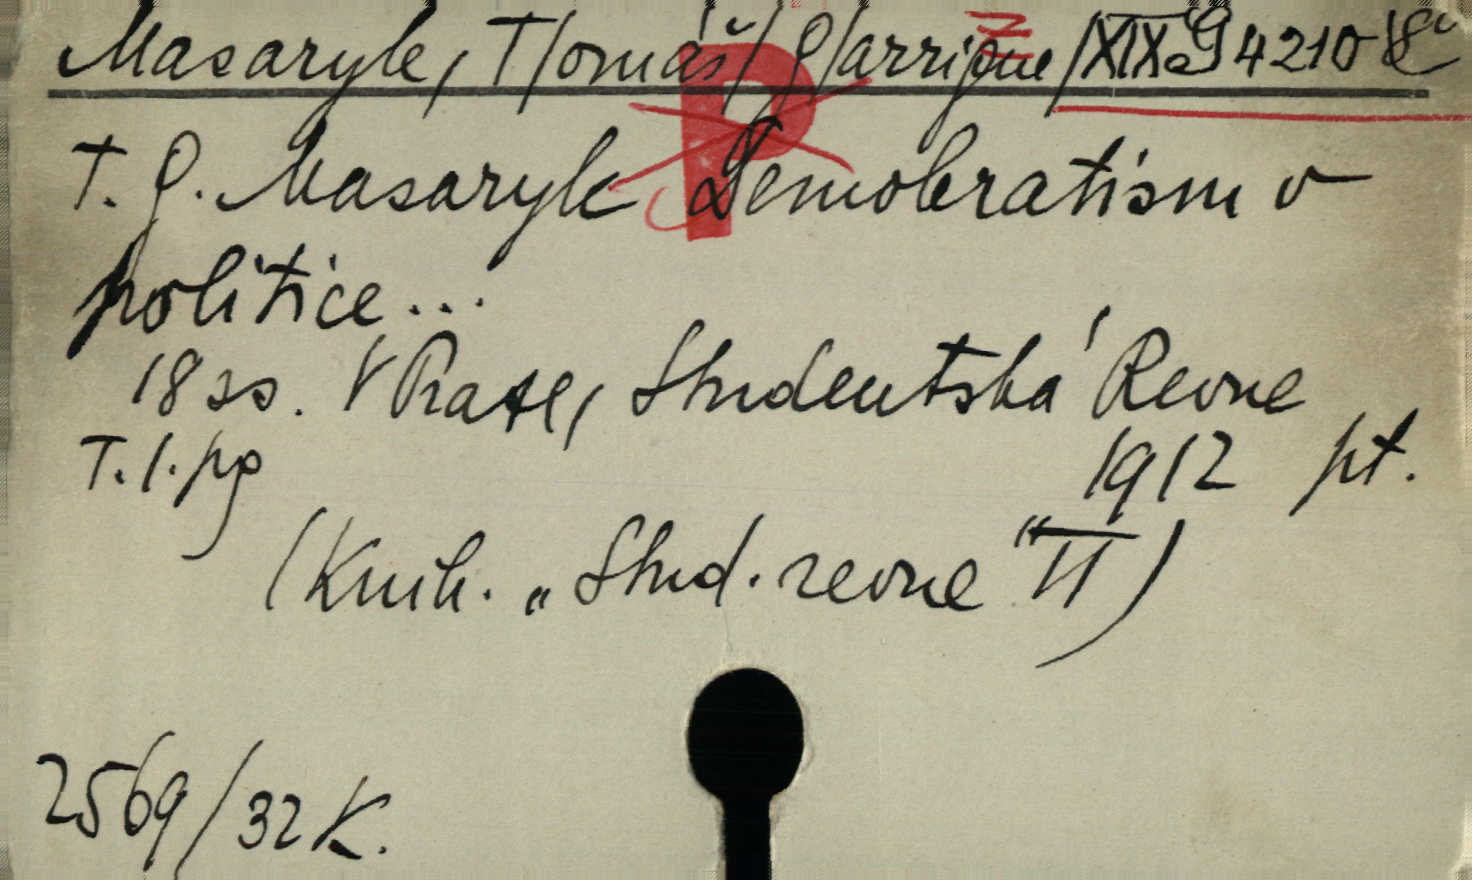 Masaryk, T/omáš/ G/arrigue/ XIX G 4210
T. G. Masaryk Demokratism v
politice...
18 ss. V Praze, Studentská Revue
T.l.pg 1912 pt.
(Knih. „Stud. revue“ II)
2569/32 K.